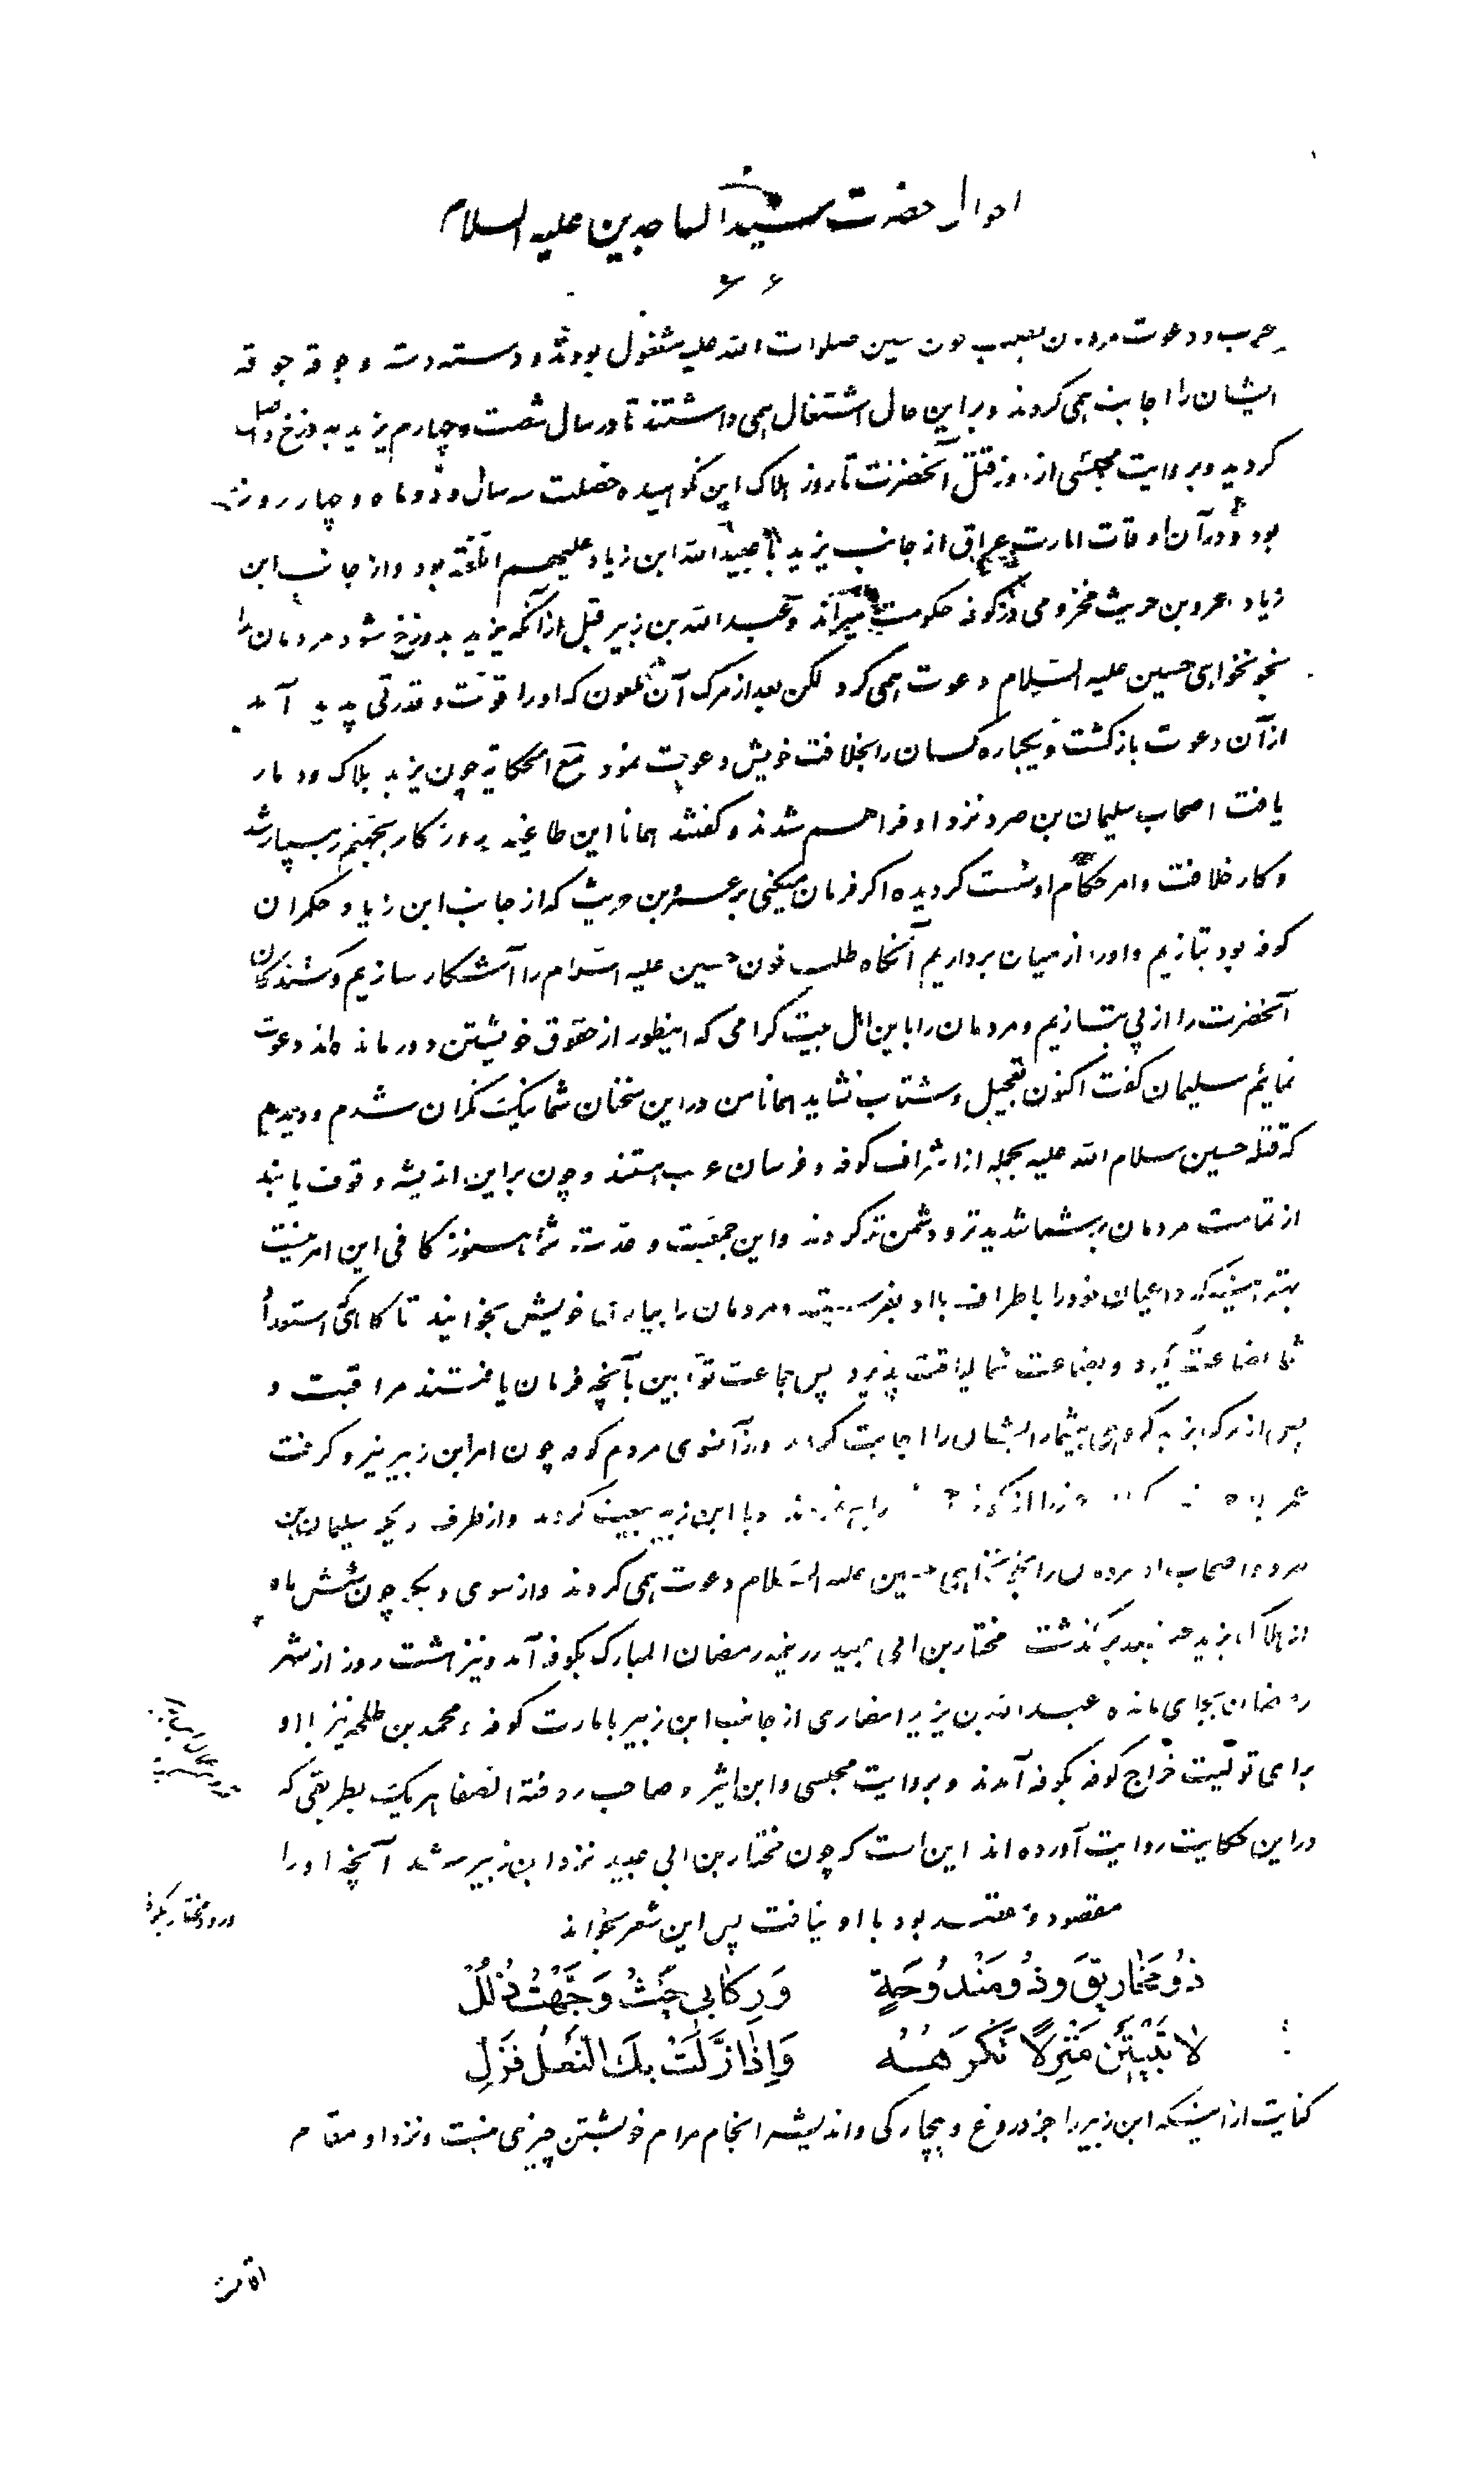 احوال حضرت سید الساجدین علیه السلام
۶۶
حرب و دعوت مردمان بطلب خون حسین صلوات الله علیه مشغول بودند و دسته دسته و جوقه جوقه
ایشان را اجابت همی کردند و بر این حال اشتغال همی داشتند تا در سال شصت و چهارم یزید به دوزخ واصل
کردید و بروایت مجلسی از روز قتل آنحضرت تا روز هلاک این نکوهیده خصلت سه سال و دو ماه و چهار روز
بود و در آن اوقات امارت عراق از جانب یزید با عبیدالله ابن زیاد علیهم اللعنه بود و از جانب ابن
زیاد عمرو بن حریث مخزومی در کوفه حکومت میراند و عبدالله بن زبیر قبل از آنکه یزید بدوزخ شود مردمان را
بخونخواهی حسین علیه السلام دعوت همی کرد لکن بعد از مرک آن ملعون که او را قوت و قدرتی پدید آمد
از آن دعوت بازکشت و یکباره کسان را بخلافت خویش دعوت نمود مع الحکایة چون یزید هلاک و دمار
یافت اصحاب سلیمان بن صرد نزد او فراهم شدند و کفتند همانا این طاغیه روزکار بجهنم رهسپار شد
و کار خلافت و امر حکام او سست کردیده اکر فرمان میکنی بر عمرو بن حریث که از جانب ابن زیاد حکمران
کوفه بود بتازیم و او را از میان برداریم آنکاه طلب خون حسین علیه السلام را آشکار سازیم و کشندکان
آنحضرت را از پی بتازیم و مردمان را باین اهل بیت کرامی که اینطور از حقوق خویشتن دور مانده‌اند دعوت
نمائیم سلیمان کفت اکنون تعجیل و شتاب نشاید همانا من در این سخنان شما نیک نکران شدم و دیدم
که قتله حسین سلام الله علیه بجمله از اشراف کوفه و فرسان عرب هستند و چون بر این اندیشه وقوف یابند
از تمامت مردمان بر شما شدیدتر و دشمن تر کردند و این جمعیت و عدت شما هنوز کافی این امر نیست
بهتر اینکه داعیان خود را باطراف بلاد بفرستید و مردمان را بیاری خویش بخوانید تا کاهی استعداد
شما اضاعت کیرد و بضاعت شما لیاقت پذیرد پس جماعت توابین بآنچه فرمان یافتند مراقبت و
پس از مرک یزید کروهی بیشمار ایشان را اجابت کردند و از آنسوی مردم کوفه چون امر ابن زبیر نیرو کرفت
را از کوفه و با ابن زبیر بیعت کردند و از طرف دیکر سلیمان بن
صرد و اصحاب او مردمان را بخونخواهی حسین علیه السلام دعوت همی کردند و از سوی دیکر چون شش ماه
از هلاک یزید پلید برکذشت مختار بن ابی عبید در نیمه رمضان المبارک بکوفه آمد و نیز هشت روز از شهر
رمضان بجای مانده عبدالله بن یزید انصاری از جانب ابن زبیر بامارت کوفه و محمد بن طلحه نیز با او
برای تولیت خراج کوفه بکوفه آمدند و بروایت مجلسی و ابن اثیر و صاحب روضة الصفا هر یک بطریقی که
در این حکایت روایت آورده اند این است که چون مختار بن ابی عبید نزد ابن زبیر شد آنچه او را
ورود مختار بکوفه
مقصود و معتمد بود با او نیافت پس این شعر بخواند
ذُو مَخَارِيقَ وَذُو مَنْدُوحَةٍ وَرِكَابِي حَيْثُ وَجَّهْتُ ذُلُلْ
لَا تَبِيتَنَّ مَنْزِلًا تَكْرَهُهُ وَإِذَا زَلَّتْ بِكَ النَّعْلُ فَزُلْ
کنایت از اینکه ابن زبیر را جز دروغ و بیچارکی و اندیشه انجام مرام خویشتن چیزی نیست و نزد او مقام
اقامت